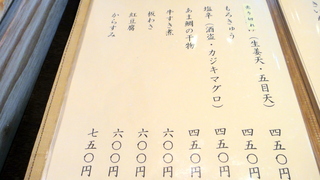 (生姜天・五目天) 四五〇円
もろきゅう 四五〇円
塩辛(酒盗・カジキマグロ) 四五〇円
あま鯛の干物 四五〇円
牛すき煮 六〇〇円
板わさ 六〇〇円
紅豆腐 六〇〇円
からすみ 七五〇円